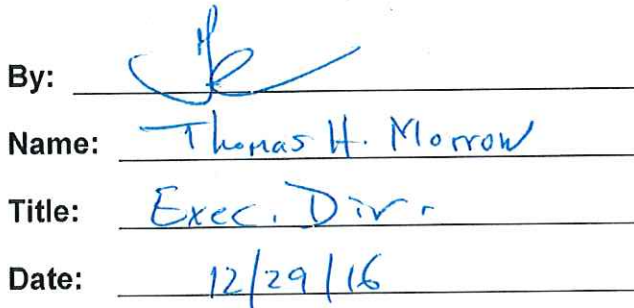 By:
Name: Thomas H. Morrow
Title: Exec. Dir.
Date: 12/29/16